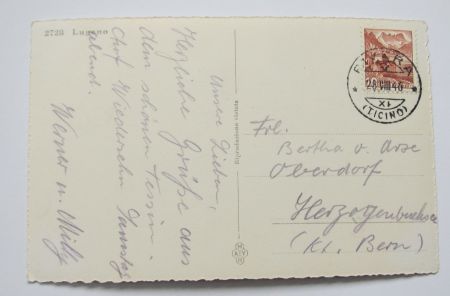 2728 Lugano
Unsere Lieben,
Herzliche Grüße aus
dem schönen Tessin.
Auf Wiedersehn Samstag
abend.
Werner u. Milly
Riproduzione vietata
FAIDO
28.VIII.46
XI
(TICINO)
Frl.
Bertha v. Arx
Oberdorf
Herzogenbuchsee
(Kt. Bern)